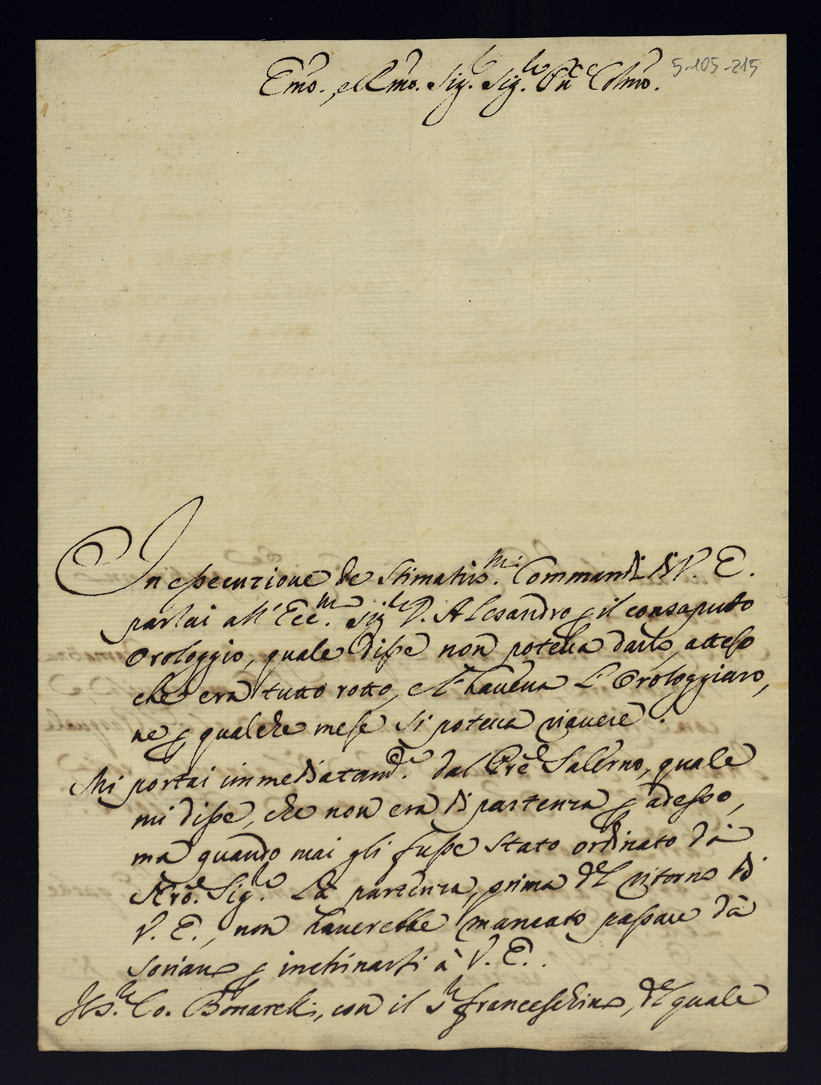 Emo., e Rmo. Sig.r Sig.re Pne Colmo. 5-105-215
In essecuzione de stimatiss.mi Commandi di V. E.
parlai all'Ecc.mo Sig.re D. Alesandro p il consaputo
Orologgio, quale disse non poteva darlo, atteso
che era tutto rotto, e l'haveva l'Orologgiaro,
ne p qualche mese si poteva riavere.
Mi portai immediatam.te dal Pre Salerno, quale
mi disse, che non era di partenza p adesso,
ma quando mai gli fusse stato ordinato da
Nro. Sig.re la partenza, prima del ritorno di
V. E., non haverebbe mancato passare da
Soriano p inchinarsi à V. E.
Il S.r Co. Bonarelli, con il S.r Franceschino, del quale